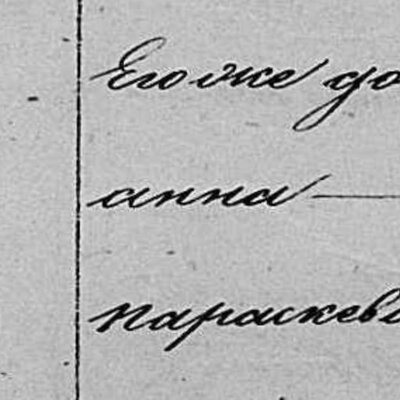 Егоже до
анна —
параскева